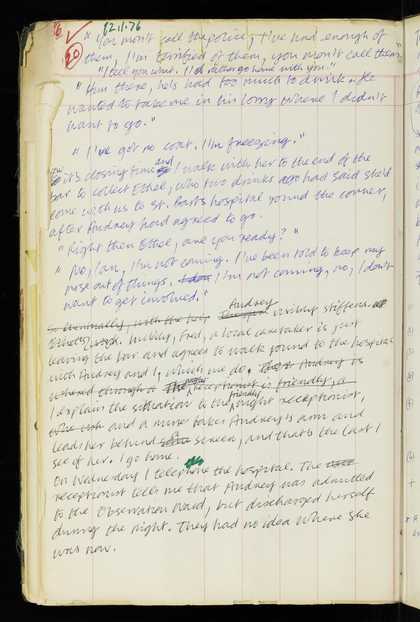 12.11.76
20
"You won't call the police, I've had enough of
them, I'm terrified of them, you won't call them"
"I tell you what. I'd rather go home with you."
"Him there, he's had too much to drink. He
wanted to take me in his lorry where I didn't
want to go."
"I've got no coat. I'm freezing."
it's closing time and I walk with her to the end of the
bar to collect Ethel, who two drinks ago had said she'd
come with us to St. Barts hospital round the corner,
after Audrey had agreed to go.
"Right then Ethel, are you ready?"
"No, Ian, I'm not coming. I've been told to keep my
nose out of things, I'm not coming, no, I don't
want to get involved."
So eventually, with the help Audrey visibly stiffens
Ethel's hubby, Fred, a local caretaker is just
leaving the bar and agrees to walk round to the hospital
with Audrey and I, which we do. Audrey is
ushered through a The night receptionist is friendly, a
I explain the situation to the friendly night receptionist,
and a nurse takes Audrey's arm and
leads her behind screen, and that's the last I
see of her. I go home.
On Wednesday I telephone the hospital. The
receptionist tells me that Audrey was admitted
to the Observation Ward, but discharged herself
during the night. They had no idea where she
was now.